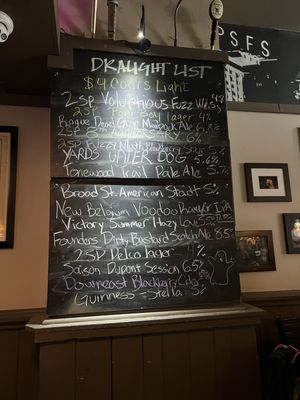 PSFS
DRAUGHT LIST
$4 Coors Light
2SP Voluptuous Fuzz Weiss 4.8
2SP Pony Boy Lager 4%
Rogue Dead Guy Maibock Ale 6.8%
2SP 6%
2SP Fuzzy 5%
YARDS UPPER DOG 5.6%
Tonewood Trail Pale Ale 5%
Broad St. American Stout 5%
New Belgium Voodoo Ranger IPA
Victory Summer Hazy
Founders Dirty Bastard Scotch Ale 8.5%
2SP Delco Lager %
Saison Dupont Session 6.5%
Downeast Blackberry Cider 5%
Guinness - Stella 5%